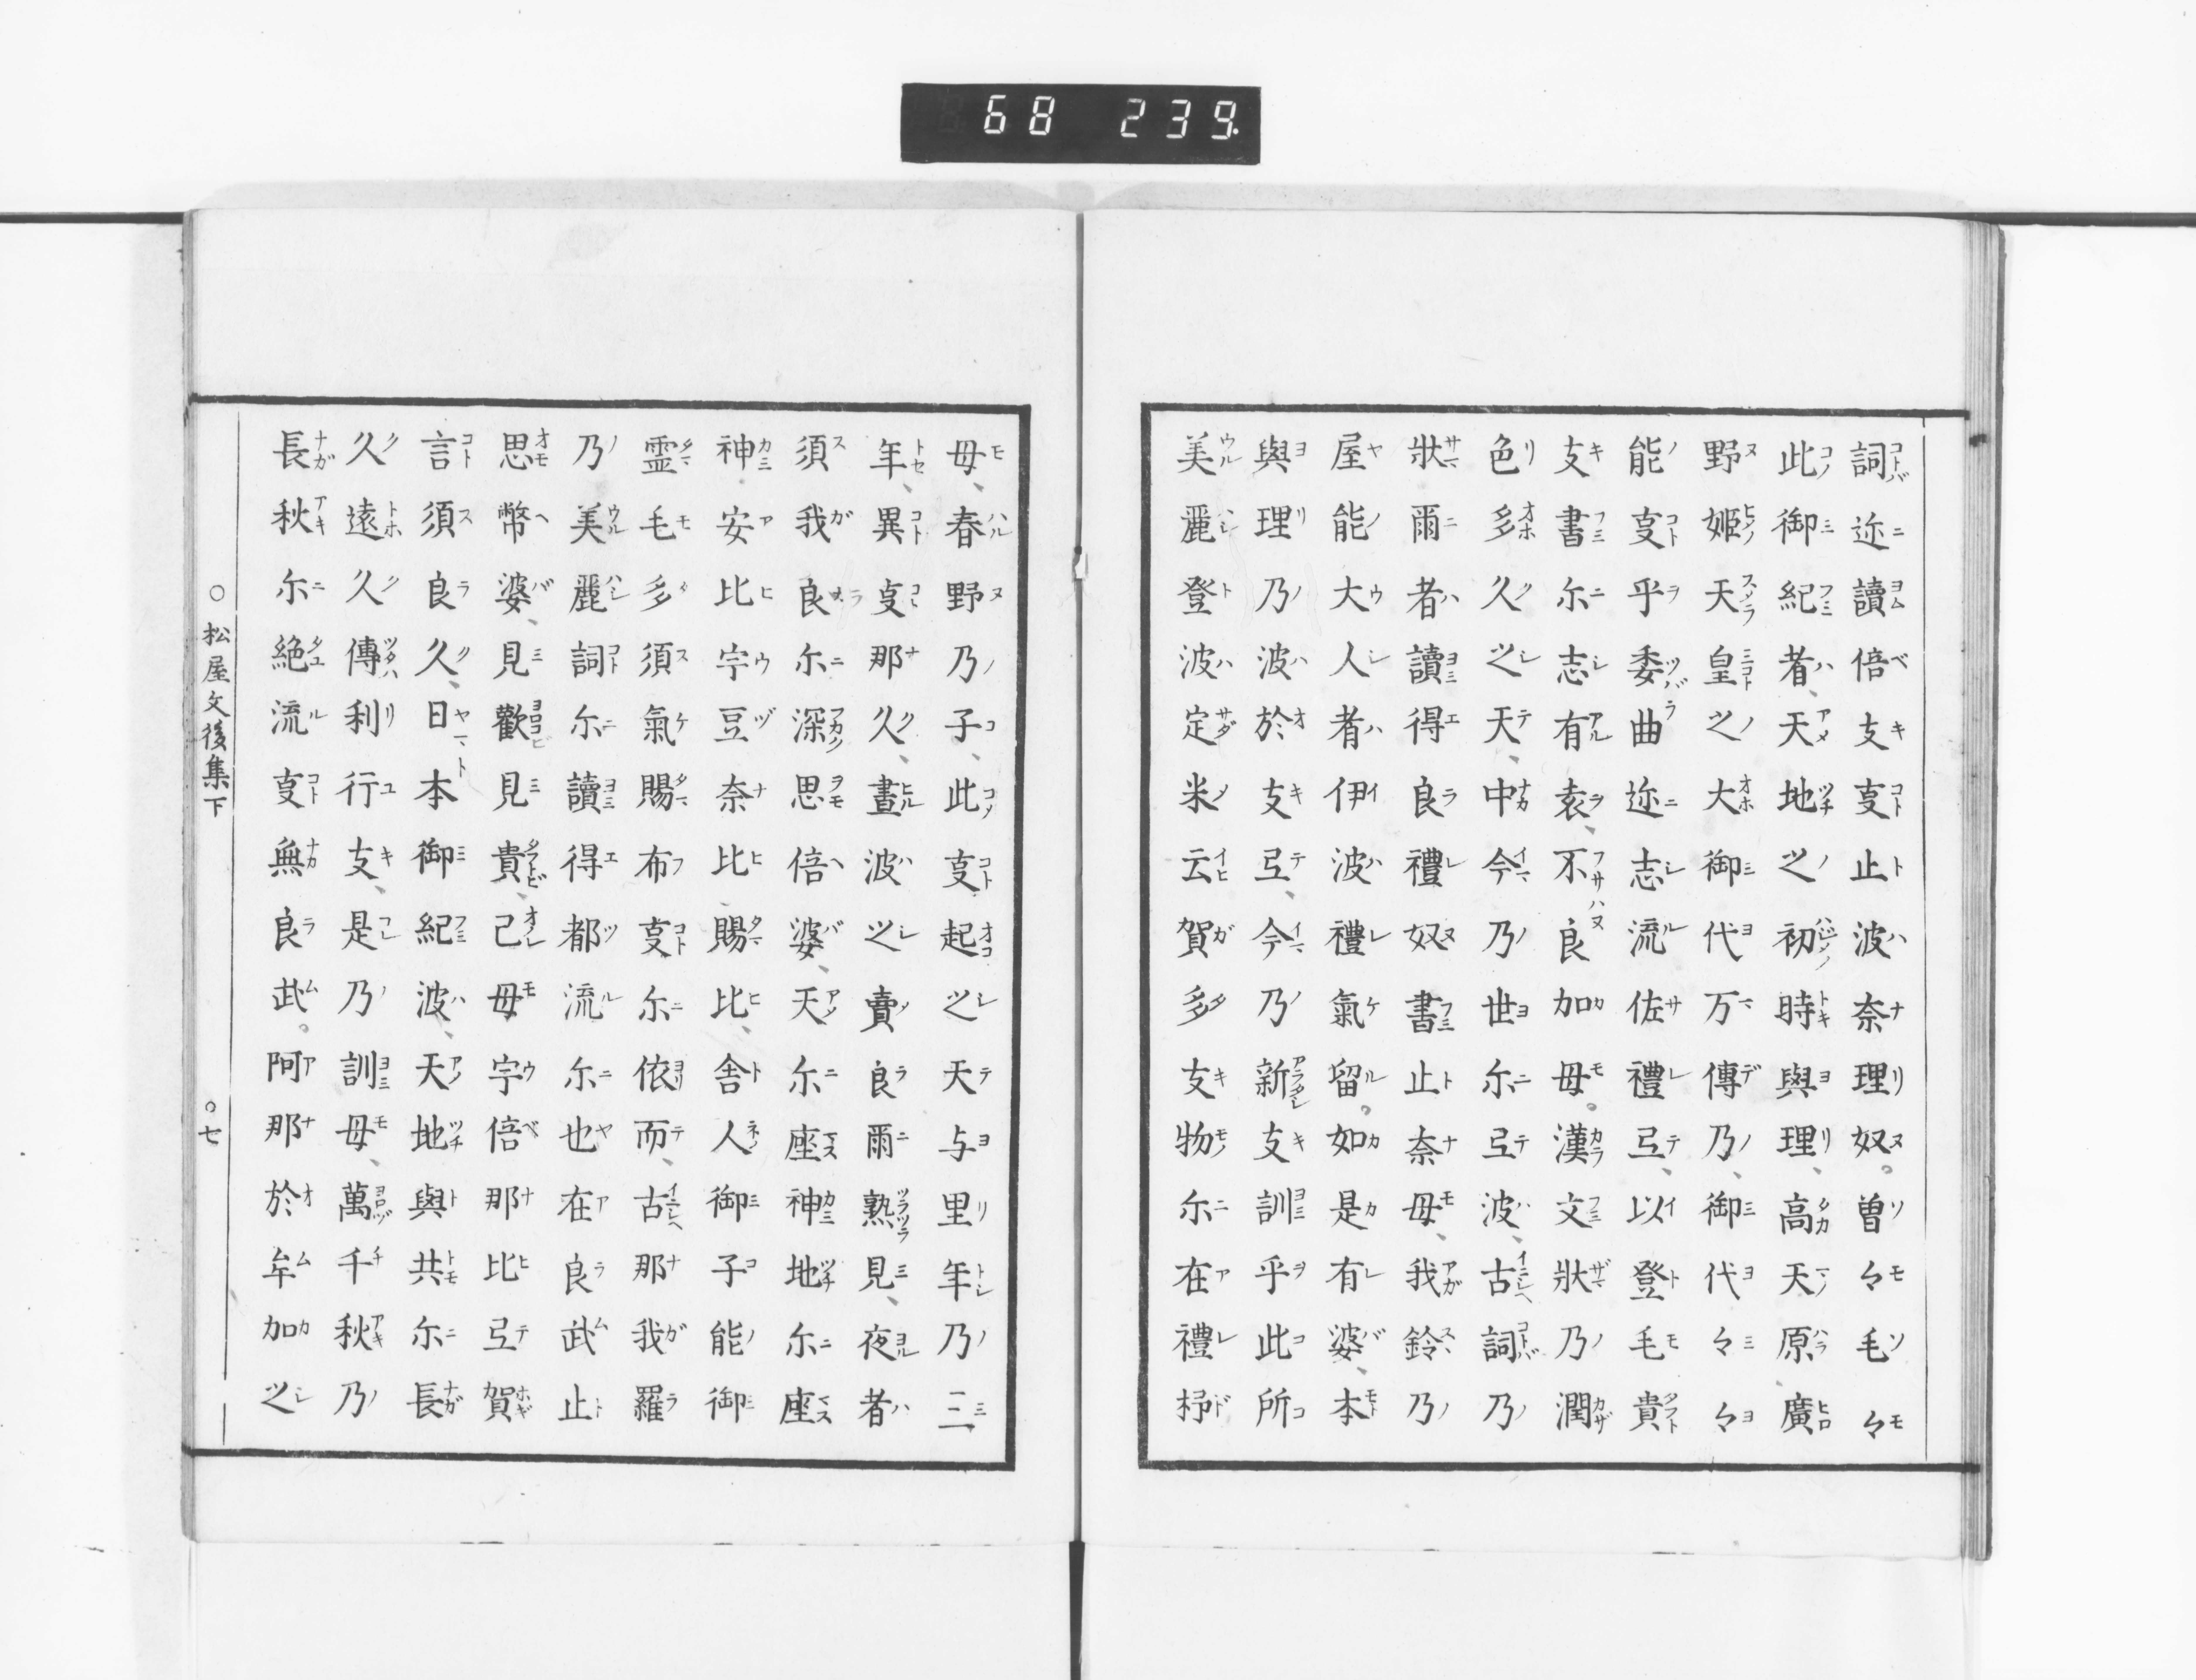 68 239
詞迩讀倍支叓止波奈理奴。曽々毛々
此御紀者、天地之初時與理、高天原廣
野姫天皇之大御代万傳乃、御代々々
能叓乎委曲迩志流佐禮弖、以登毛貴
支書尓志有袁、不良加母。漢文狀乃潤
色多久之天、中今乃世尓弖波、古詞乃
狀爾者讀得良禮奴書止奈母、我鈴乃
屋能大人者伊波禮氣留。如是有婆、本
與理乃波於支弖、今乃新支訓乎此所
美麗登波定米云賀多支物尓在禮杼
母、春野乃子、此叓起之天与里年乃三
年、異叓那久、晝波之賣良爾熟見、夜者
須我良尓深思倍婆、天尓座神地尓座
神安比宇豆奈比賜比、舎人御子能御
霊毛多須氣賜布叓尓依而、古那我羅
乃美麗詞尓讀得都流尓也在良武止
思幣婆、見歡見貴、己母宇倍那比弖賀
言須良久、日本御紀波、天地與共尓長
久遠久傳利行支、是乃訓母、萬千秋乃
長秋尓絶流叓無良武。阿那於牟加之
○松屋文後集下 ○七